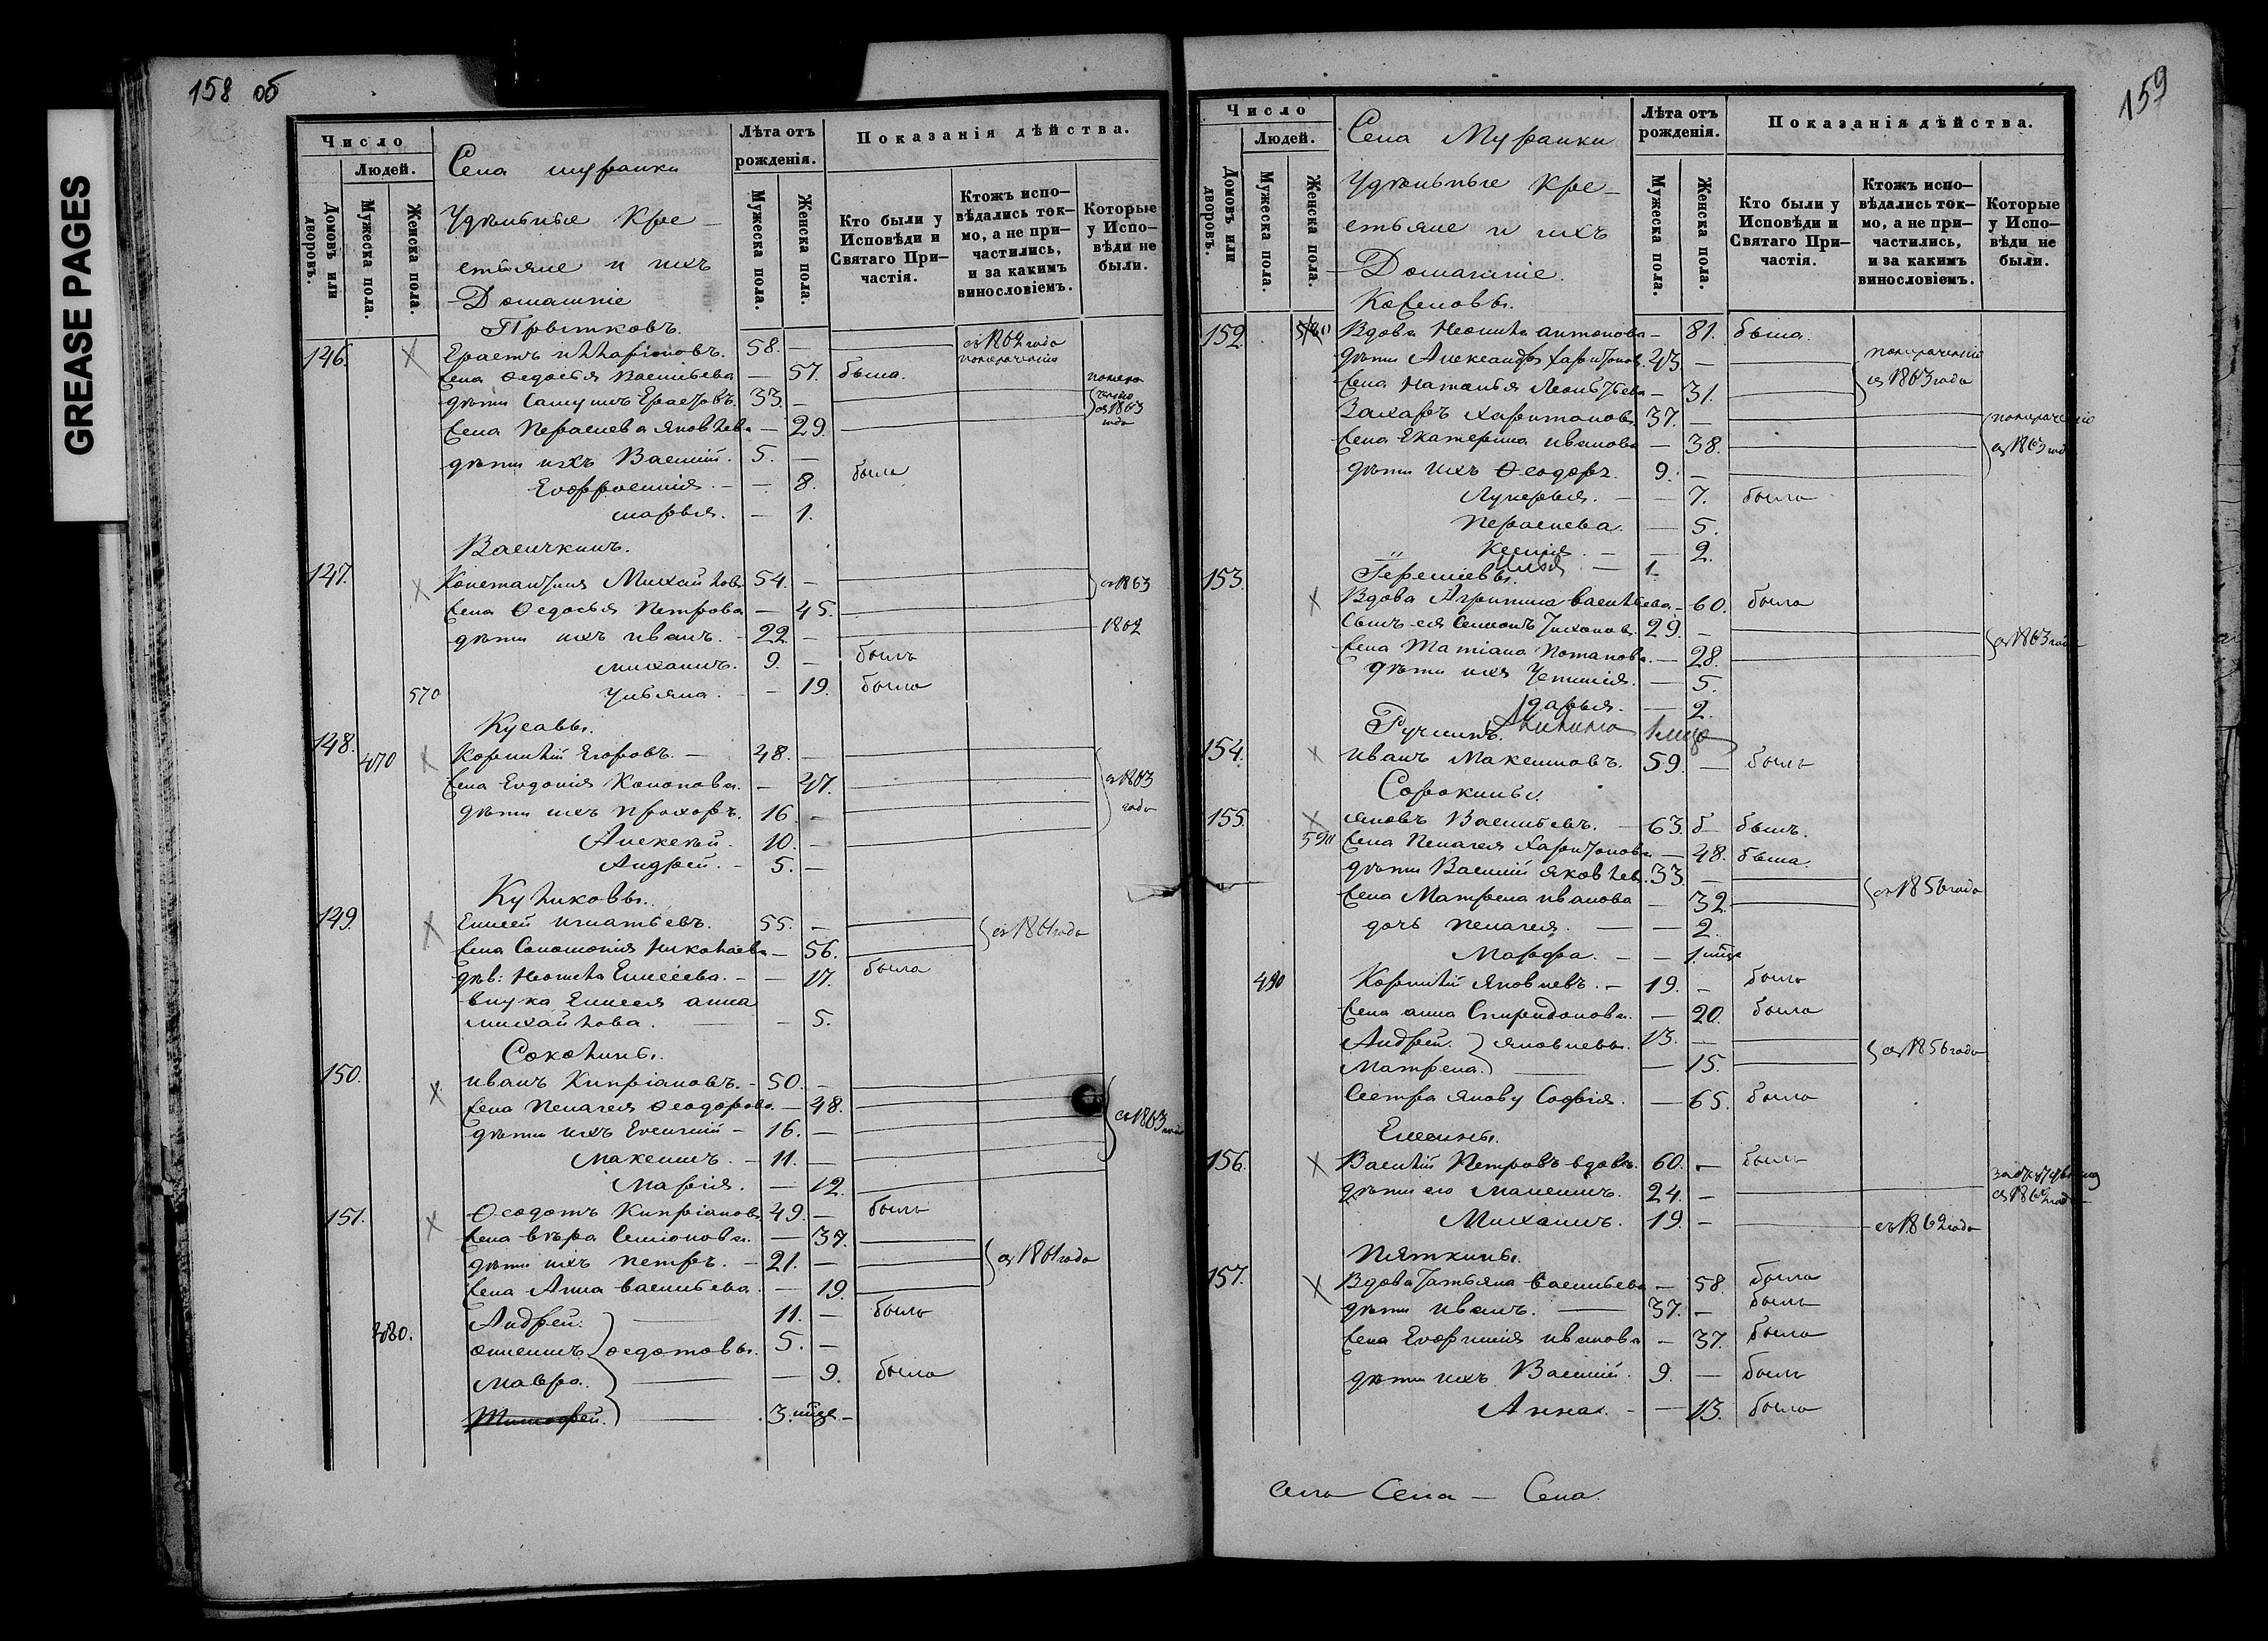 GREASE PAGES
158 об
Число
Людей.
Домовъ или дворовъ.
Мужеска пола.
Женска пола.
Села Муранки
Удѣльные Кре-
стьяне и ихъ
Домашніе
Лѣта отъ рожденія.
Мужеска пола.
Женска пола.
Показанія дѣйства.
Кто были у Исповѣди и Святаго При-частія.
Ктожъ испо-вѣдались ток-мо, а не при-частились, и за какимъ винословіемъ.
Которые у Испо-вѣди не были.
Прытковъ.
146. Ерастъ 58. — съ 1862 года
жена Ѳедосья Васильева — 57. была.
дѣти Самуилъ Ерастовъ. 33. —
жена Парасцева Яковлева — 29. съ 1863 года
дѣти ихъ Василій. 5. —
Евфросинія. — 8. была
Марья. — 1.
Васичкинъ.
147. Константинъ Михайловъ 54. — съ 1863
жена Ѳедосья Петрова — 45.
дѣти ихъ Иванъ. 22. — 1862
Михаилъ. 9. — былъ
570 Ульяна. — 19. была
Кусавы.
148. 470 Корнилій Егоровъ. — 48. —
жена Евдокія Кононова. — 47. съ 1863 года
дѣти ихъ Прохоръ. 16. —
Алексѣй. 10. —
Андрей. 5. —
Куликовы.
149. Елисей Игнатьевъ. 55. — съ 1861 года
жена Соломонія Николаева — 56.
дѣв: Неонила Елисеева. — 17. была
внука Елисея Анна
Михайлова. — 5.
Соколины.
150. Иванъ Кипріановъ. 50. —
жена Пелагея Ѳеодорова. — 48. съ 1863 года
дѣти ихъ Евсигній — 16. —
Максимъ. — 11. —
Марія. — 12.
151. Ѳедотъ Кипріановъ 49. — былъ
жена Вѣра Семіонова. — 37.
дѣти ихъ Петръ. 21. — съ 1861 года
жена Анна Васильева. — 19.
Андрей. 11. — былъ
480. Ѳедотовы. 5. —
Мавра. — 9. была
Тимофей. 3.
159
Число
Людей.
Домовъ или дворовъ.
Мужеска пола.
Женска пола.
Села Муранки
Удѣльные Кре-
стьяне и ихъ
Домашніе.
Лѣта отъ рожденія.
Мужеска пола.
Женска пола.
Показанія дѣйства.
Кто были у Исповѣди и Святаго При-частія.
Ктожъ испо-вѣдались ток-мо, а не при-частились, и за какимъ винословіемъ.
Которые у Испо-вѣди не были.
152. Вдова Неонила Антонова — 81. была.
дѣти Александръ Харитоновъ 43. —
жена Наталья Леонтьева — 31. съ 1863 года
Захаръ Харитоновъ 37. —
жена Екатерина Иванова — 38. съ 1863 года
дѣти ихъ Ѳеодоръ. 9. —
Лукерья. — 7. была
Парасцева. — 5.
Ксенія. — 2.
Илья — 1.
153. Вдова Агрипина Васильева — 60. была
Сынъ ея Симіонъ Тихоновъ. 29. —
жена Татіана Потапова. — 28. съ 1863 года
дѣти ихъ Устинія. — 5.
Дарья. — 2.
Акилина
154. Иванъ Максимовъ. 59. — былъ
Сорокины.
155. Яковъ Васильевъ. — 63. былъ.
жена Пелагея Харитонова — 48. была.
дѣти Василій Яковлевъ. 33. —
жена Матрена Иванова — 32. съ 1856 года
дочь Пелагея. — 2.
Марфа. — 1.
490 Корнилій Яковлевъ. — 19. — былъ
жена Анна Спиридонова. — 20. была
Андрей. Яковлевы. 13. —
Матрена. — 15. съ 1856 года
Сестра Якову Софія. — 65. была
Елесины.
156. Василій Петровъ вдовъ. 60. — былъ
дѣти его 24. —
Михаилъ. 19. — съ 1862 года
Пяткины.
157. Вдова Татьяна Васильева — 58. была
дѣти Иванъ. — 37. — былъ
жена Евфимія Иванова — 37. была
дѣти ихъ Василій. 9. — былъ
Анна. — 13. была